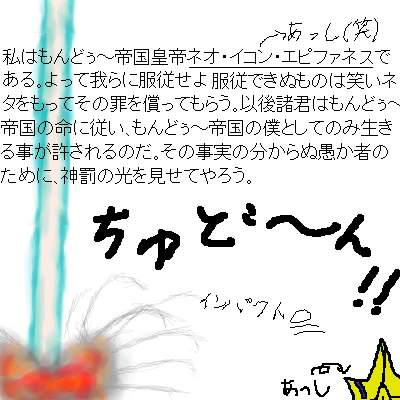 あっし(笑)
私はもんどぅ〜帝国皇帝ネオ・イコン・エピファネスで
ある。よって我らに服従せよ服従できぬものは笑いネ
タをもってその罪を償ってもらう。以後諸君はもんどぅ〜
帝国の命に従い、もんどぅ〜帝国の僕としてのみ生き
る事が許されるのだ。その事実の分からぬ愚か者の
ために、神罰の光を見せてやろう。
ちゅど〜ん
!!
インパクト
あっし